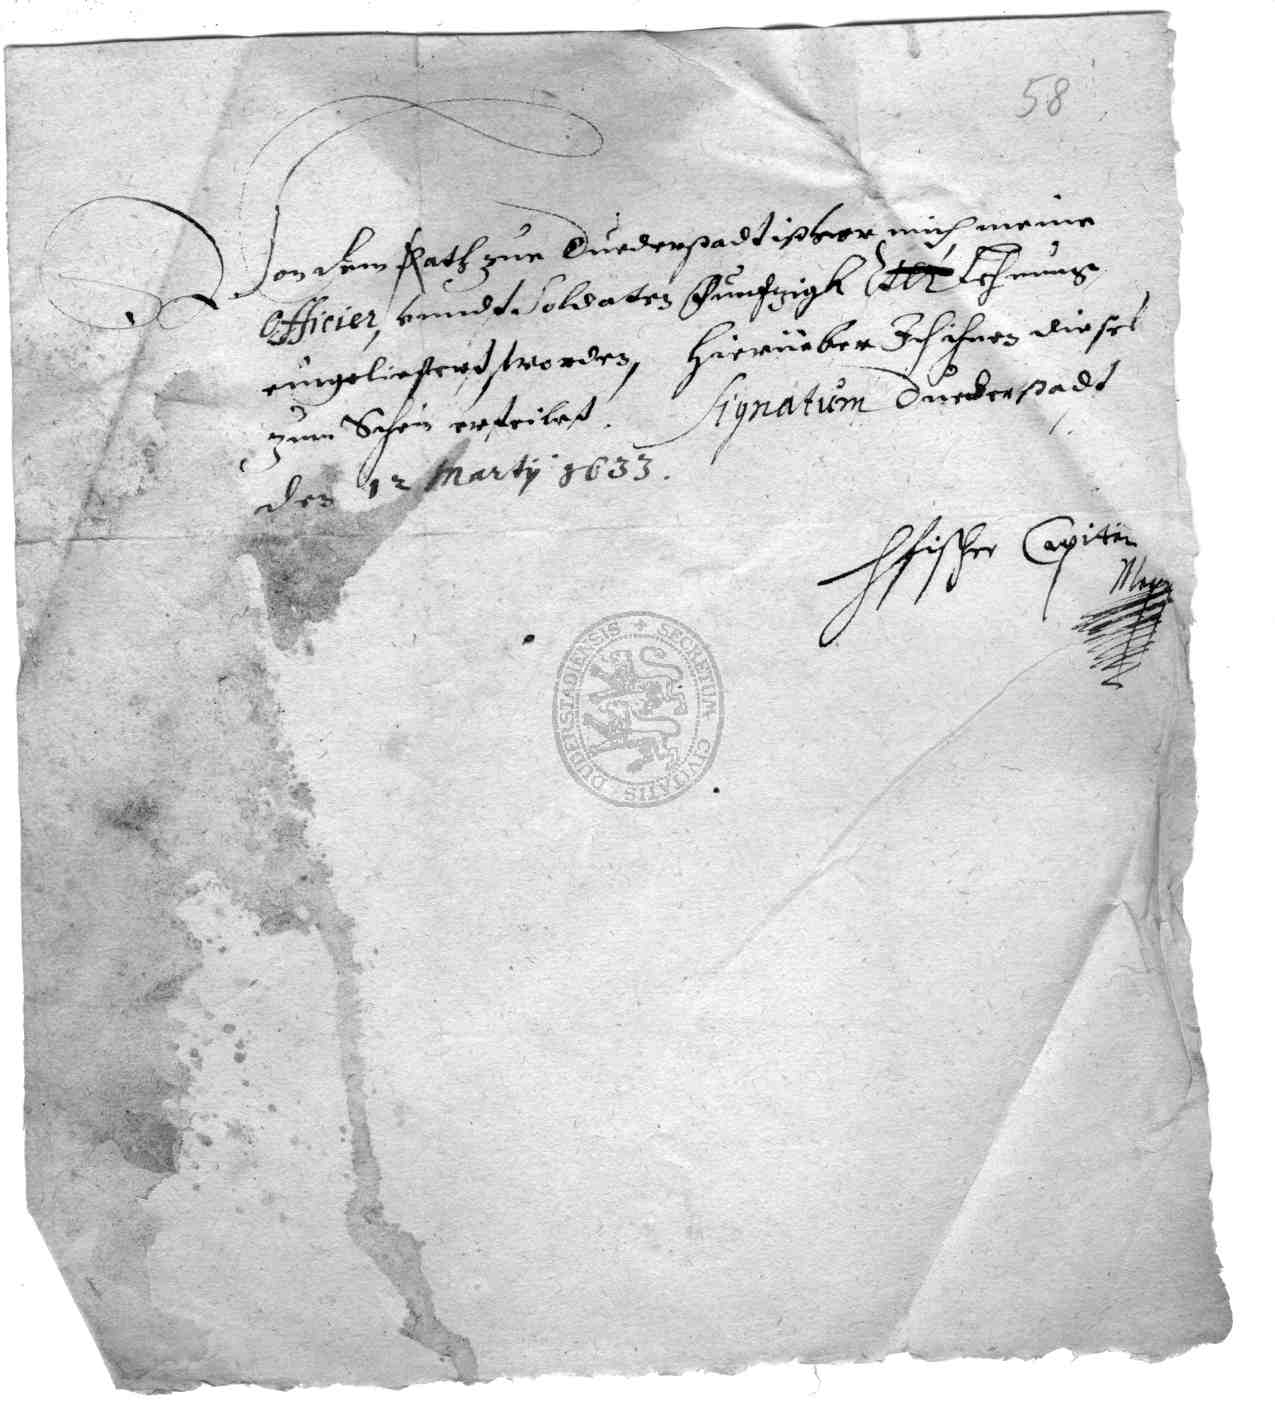 58
Von dem Rath zue Duederstadt ist vor mich meine
Officier, vnndt Soldaten Funfzigk Lehnunge
eingeliefert worden, Hierüeber Ich ihnen dieses
zum Schein erteilet. Signatum Duederstadt
den 12 Martij 1633.
Hfischer Capitin
SECRETUM CIVITATIS DUDERSTADIENSIS